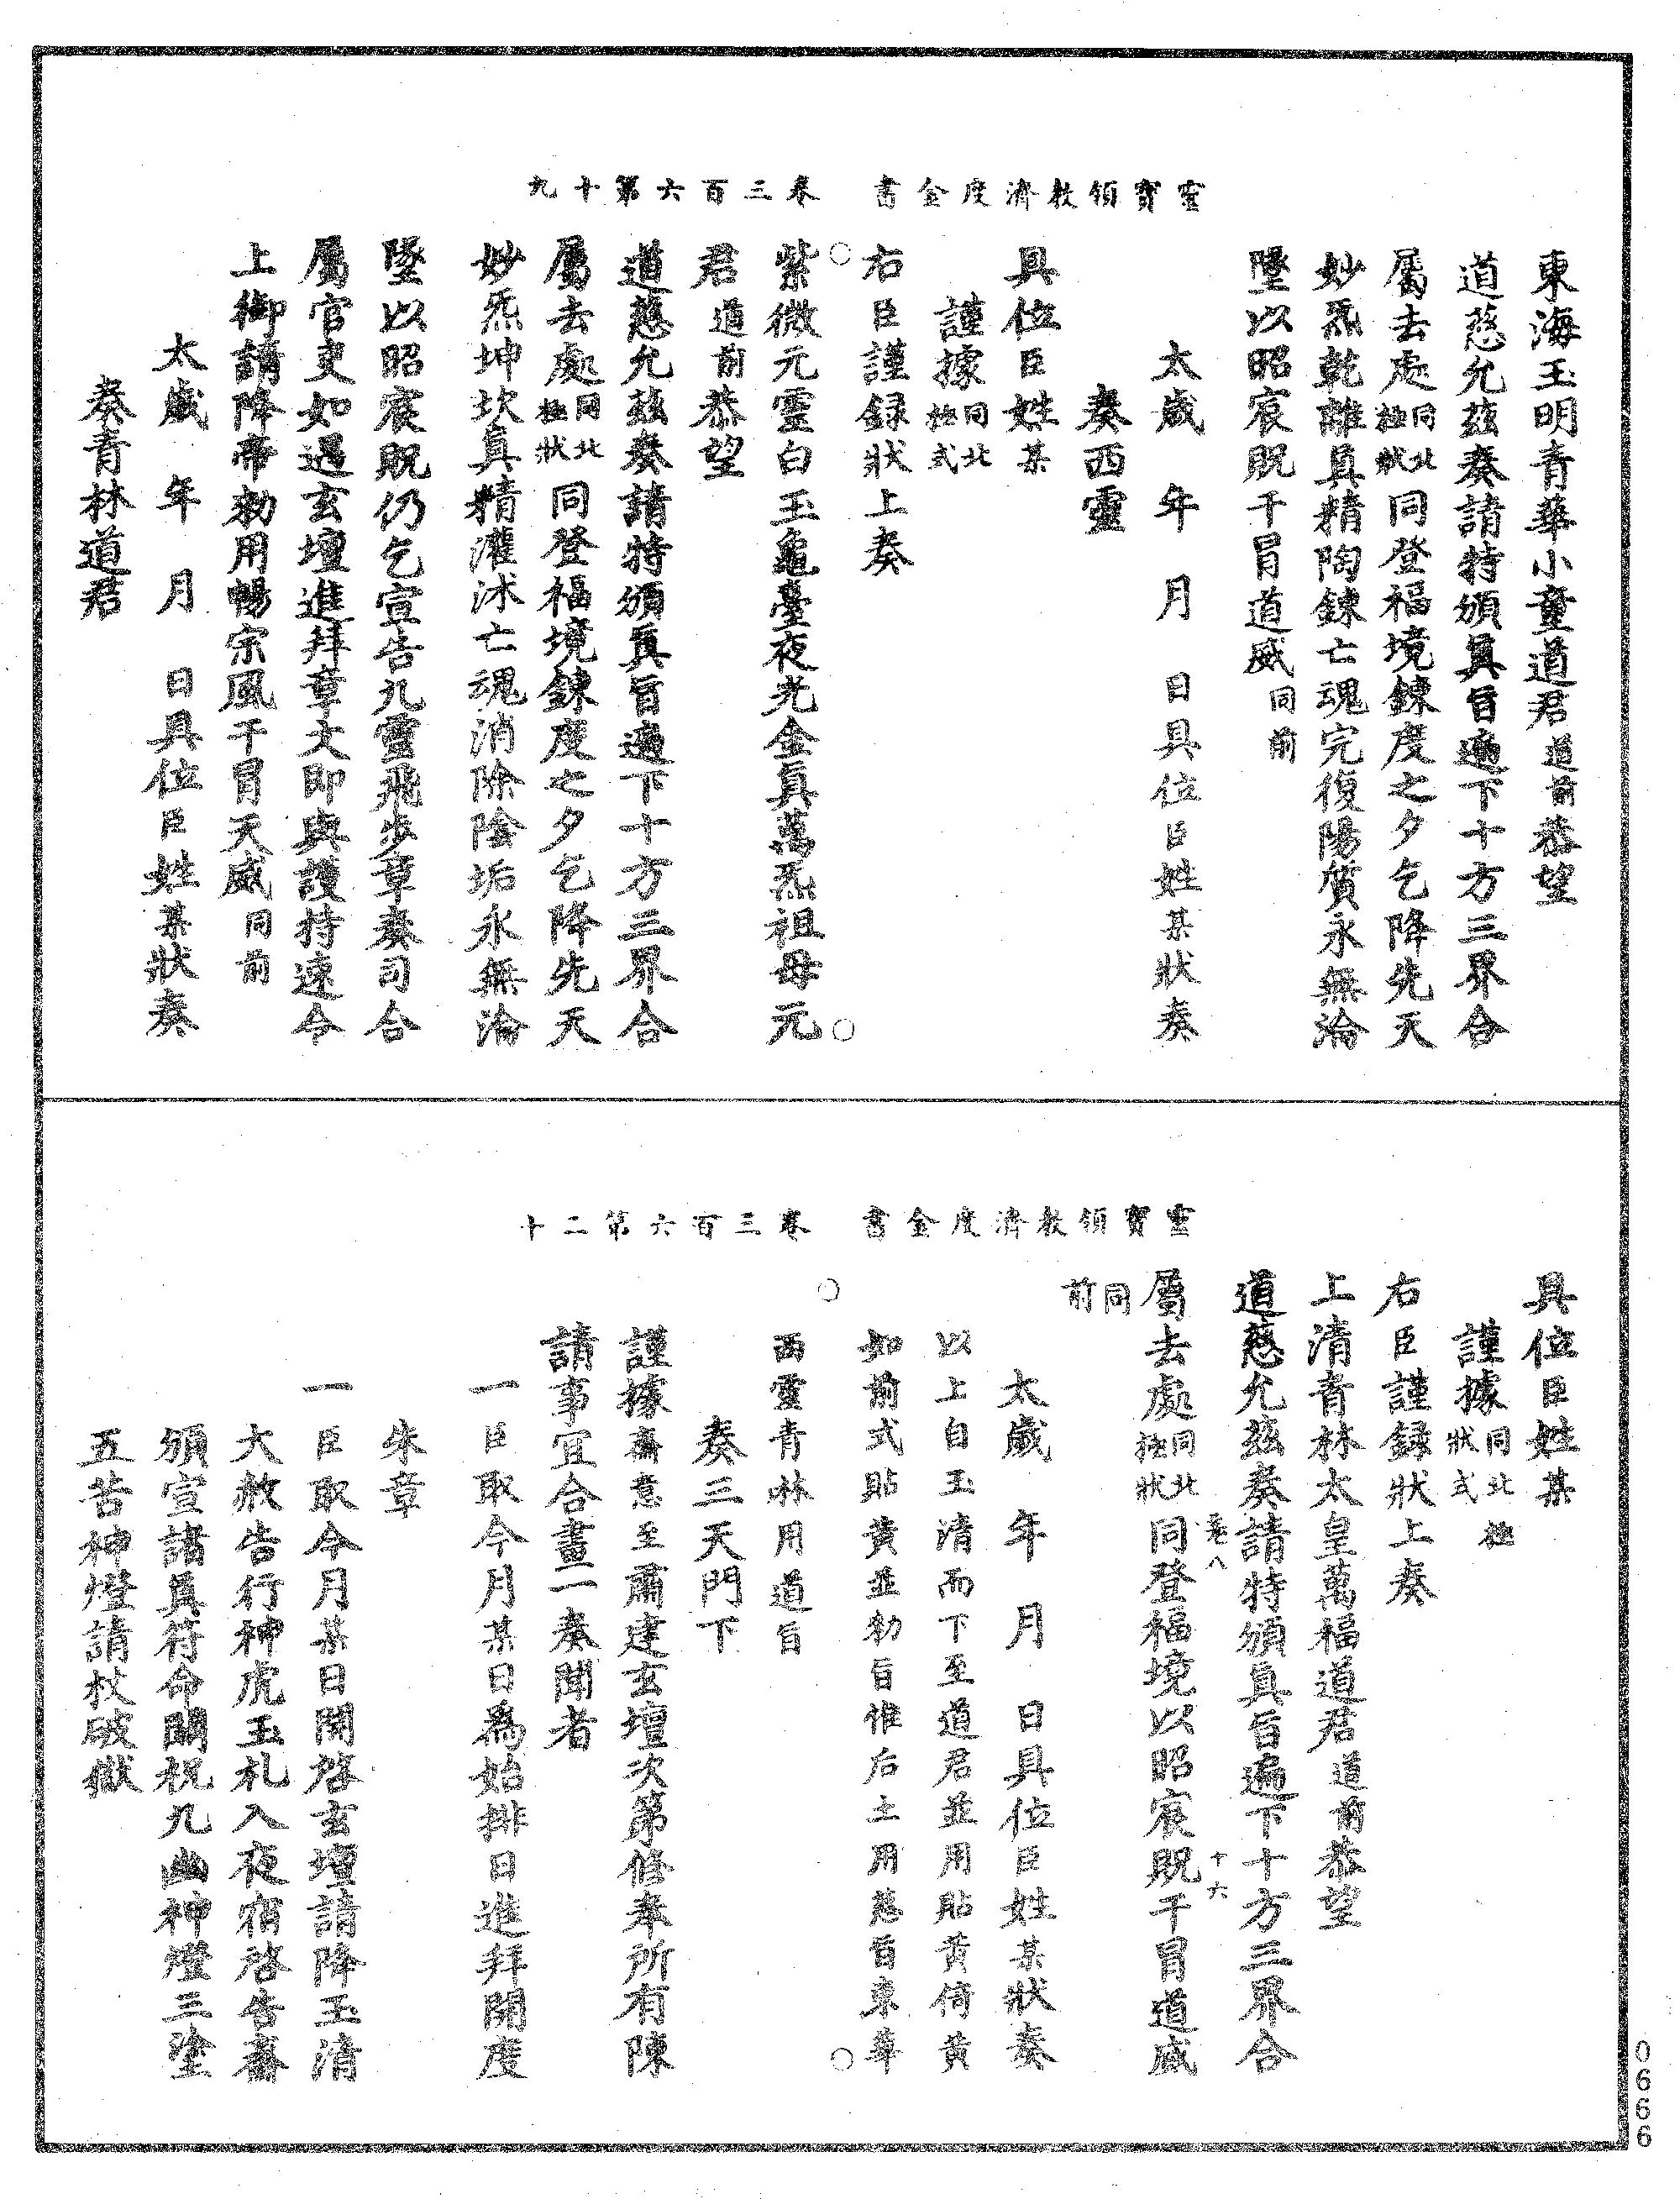 靈寶領教濟度金書　卷三百六第十九
東海玉明青華小童道君道前恭望
道慈允茲奏請特頒真旨遍下十方三界合
屬去處同北極狀同登福境鍊度之夕乞降先天
妙炁乾離真精陶鍊亡魂完復陽質永無淪
墜以昭宸貺干冒道威同前
太歲　年　月　日具位臣姓某狀奏
奏西靈
具位臣姓某
謹據同北極式
右臣謹録狀上奏
紫微元靈白玉龜臺夜光金真萬炁祖母元
君道前恭望
道慈允茲奏請特頒真旨遍下十方三界合
屬去處同北極狀同登福境鍊度之夕乞降先天
妙炁坤坎真精灌沐亡魂消除陰垢永無淪
墜以昭宸貺仍乞宣告九靈飛步章奏司合
屬官吏如遇玄壇進拜章文即與護持速令
上御請降帝勑用暢宗風干冒天威同前
太歲　年　月　日具位臣姓某狀奏
奏青林道君
靈寶領教濟度金書　卷三百六第二十
具位臣姓某
謹據同北極狀式
右臣謹録狀上奏
上清青林太皇萬福道君道前恭望
道慈允茲奏請特頒真旨遍下十方三界合
屬去處同北極狀同登福境以昭宸貺干冒道威
同前
太歲　年　月　日具位臣姓某狀奏
以上自玉清而下至道君並用貼黄倚黄
如前式貼黄並勑旨惟后土用慈旨東華
西靈青林用道旨
奏三天門下
謹據齋意至肅建玄壇次第修奉所有陳
請事宜合畫一奏聞者
一臣取今月某日為始排日進拜開度
朱章
一臣取今月某日開啓玄壇請降玉清
大赦告行神虎玉札入夜宿啓告齋
頒宣諸真符命關祝九幽神燈三塗
五苦神燈請杖破獄
0666